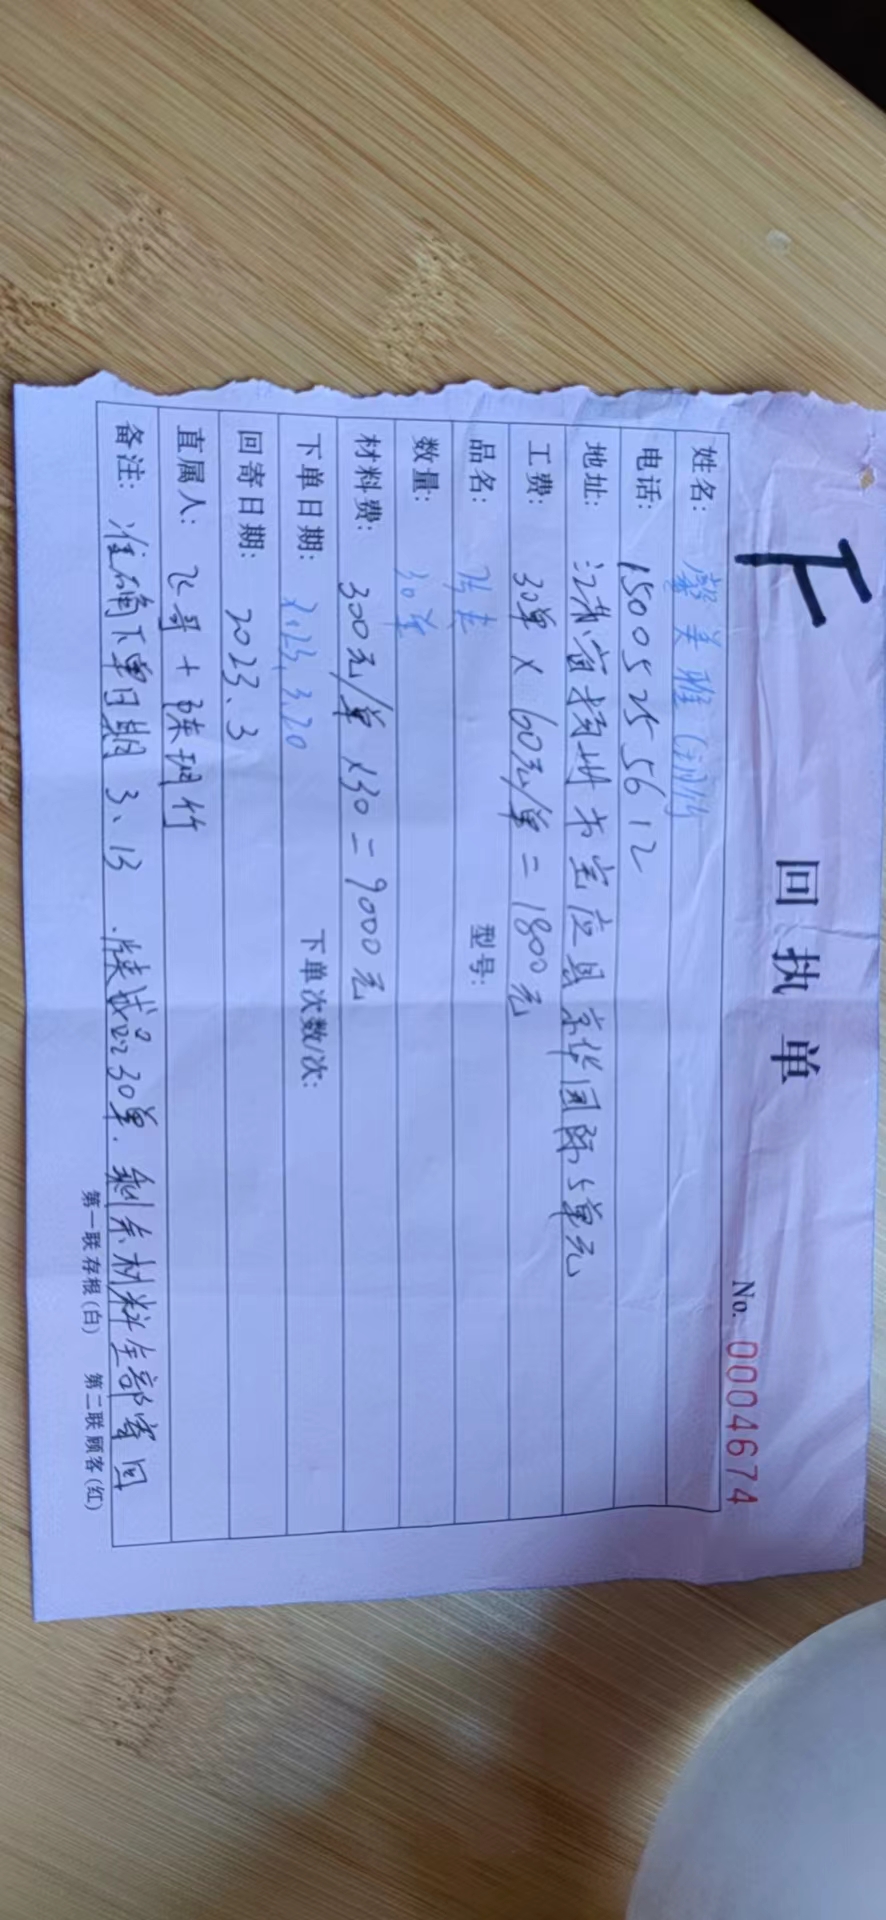 F
回执单
No. 0004674
姓名: 美雅
电话: 15005255612
地址: 江苏省扬州市宝应县京华国际5单元
工费: 30单×60元/单=1800元
品名: 型号:
数量: 30单
材料费: 300元/单×30=9000元
下单日期: 2023.3.20 下单次数/次:
回寄日期: 2023.3
直属人: 飞哥+陈珊竹
备注: 准确下单日期3.13.成品30单.剩余材料全部寄回
第一联存根(白) 第二联顾客(红)